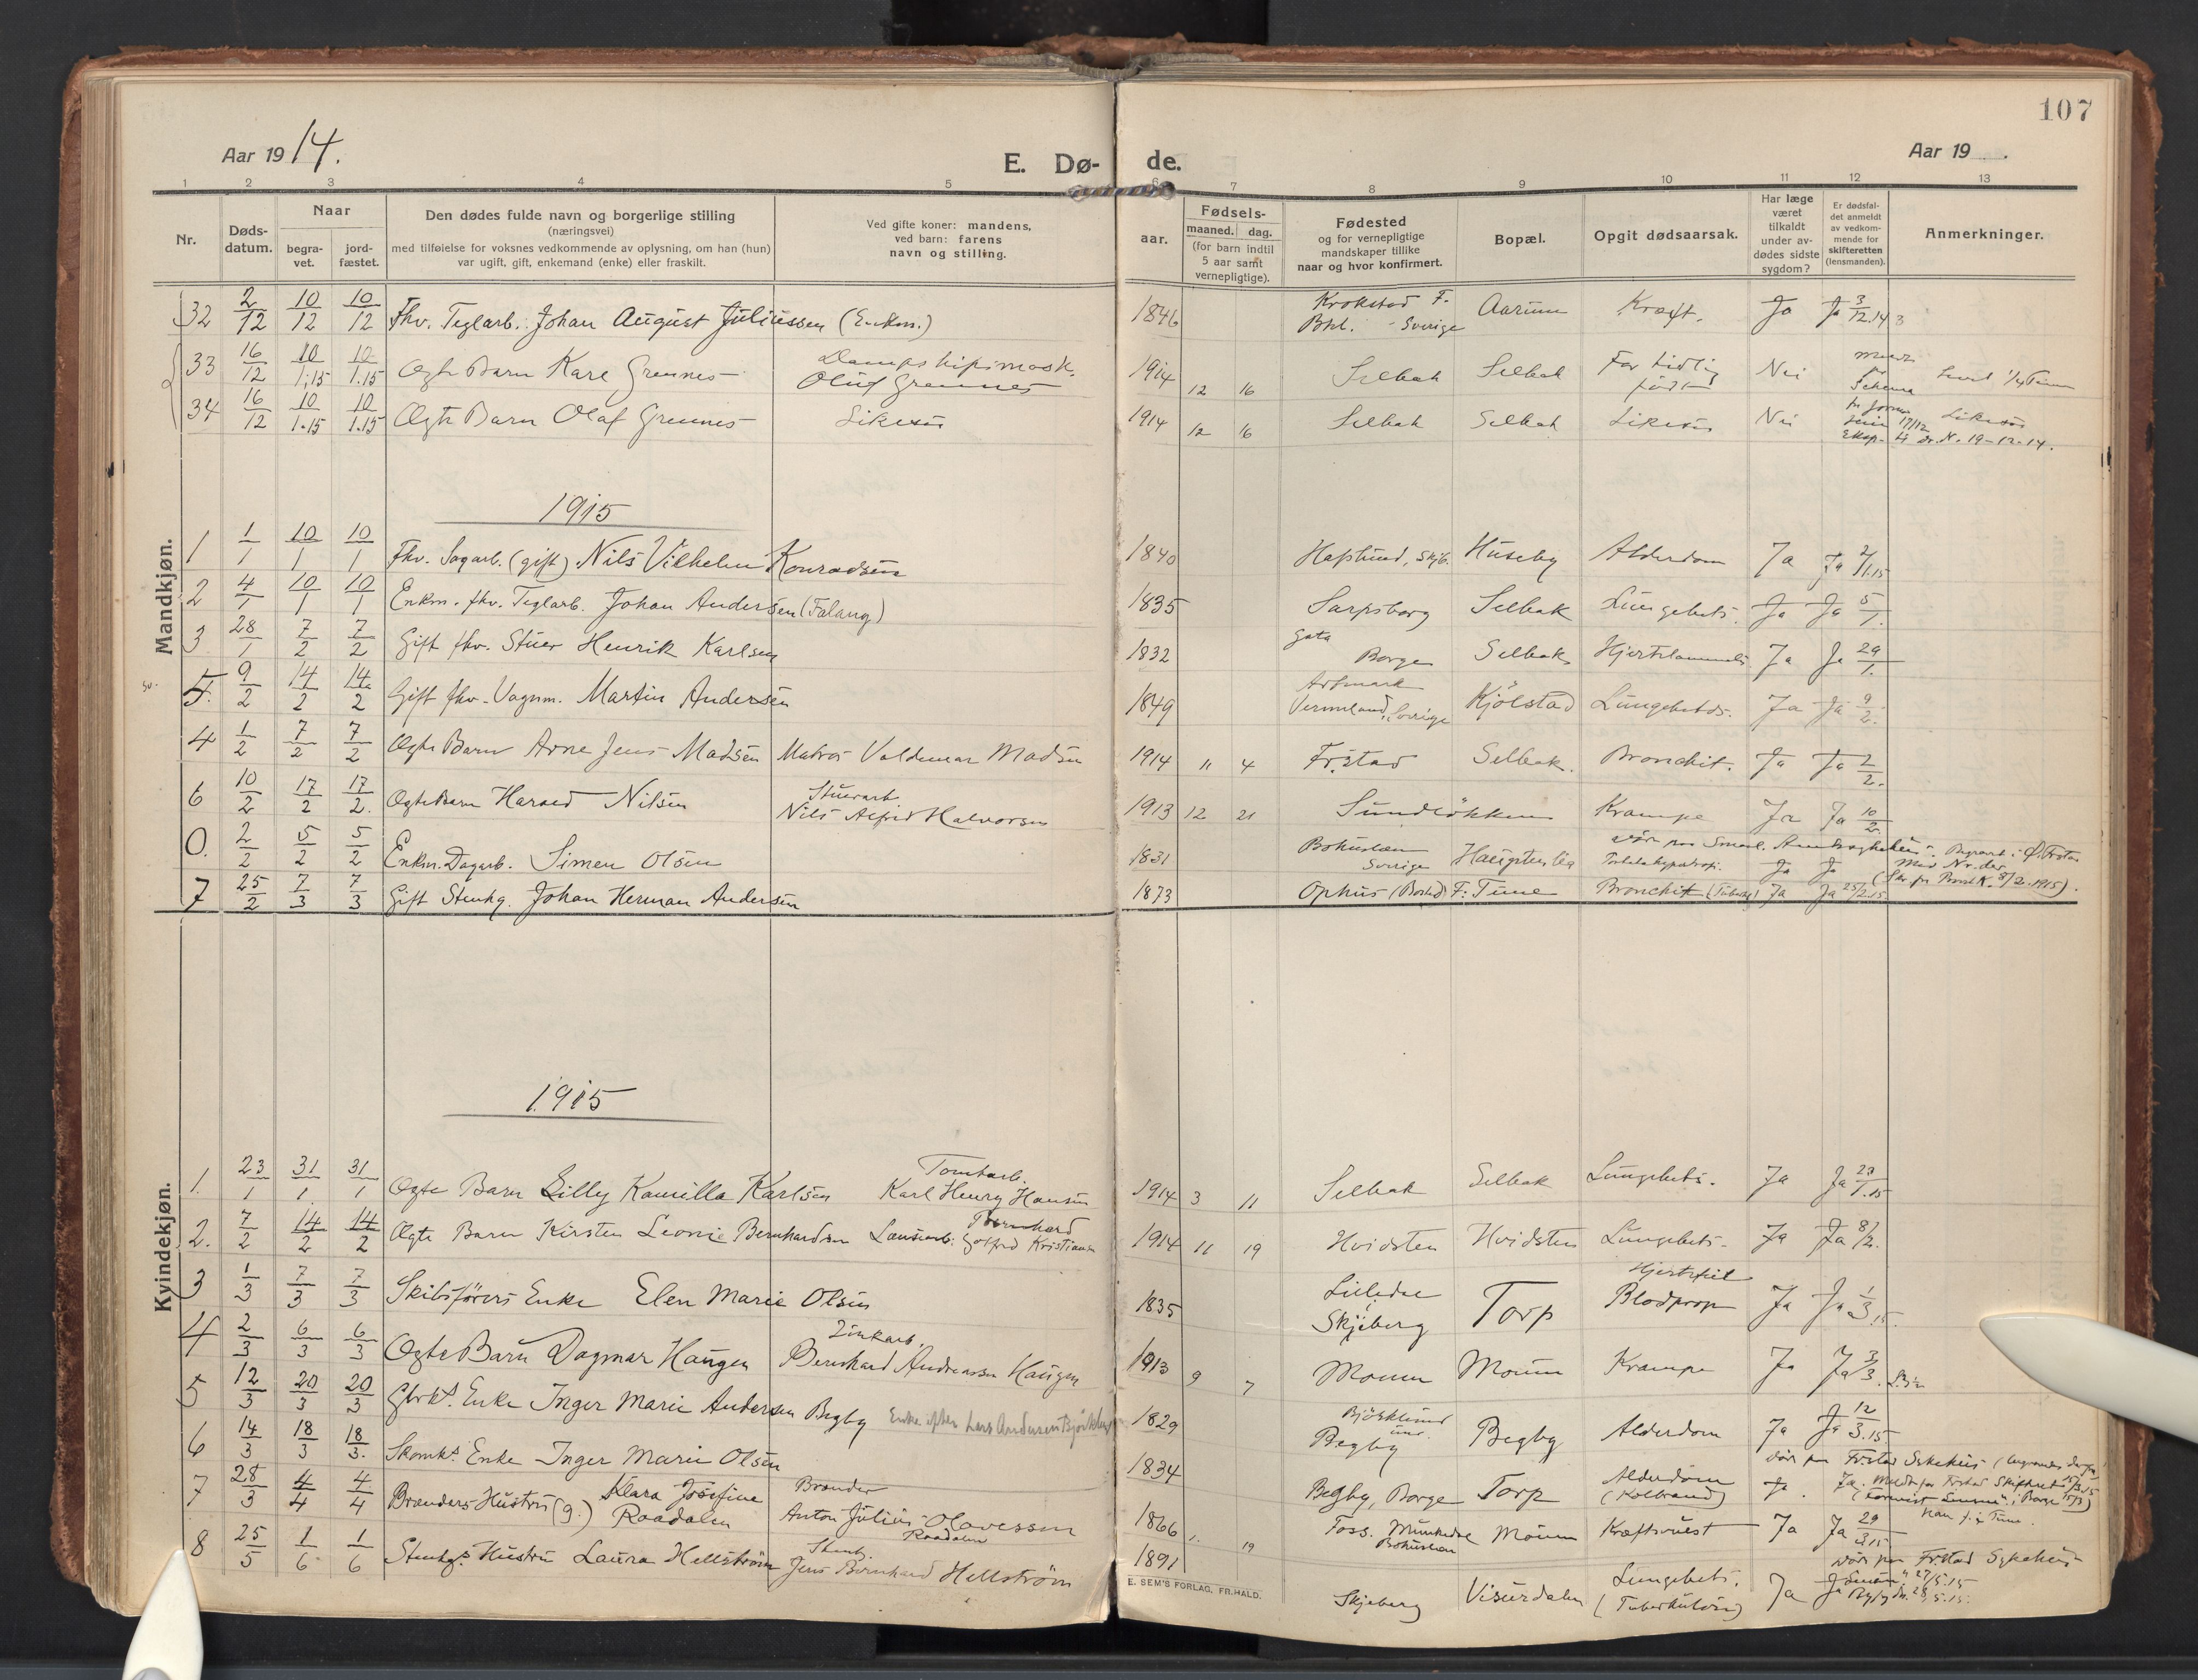 107
Aar 1914.
E. Dø-
de.
Aar 19 .
1 2 3 4 5 6 7 8 9 10 11 12 13
Nr.
Døds-
datum.
Naar
begra-
vet.
jord-
fæstet.
Den dødes fulde navn og borgerlige stilling
(næringsvei)
med tilføielse for voksnes vedkommende av oplysning, om han (hun)
var ugift, gift, enkemand (enke) eller fraskilt.
Ved gifte koner: mandens,
ved barn: farens
navn og stilling.
Fødsels-
aar.
maaned. dag.
(for barn indtil
5 aar samt
vernepligtige).
Fødested
og for vernepligtige
mandskaper tillike
naar og hvor konfirmert.
Bopæl.
Opgit dødsaarsak.
Har læge
været
tilkaldt
under av-
dødes sidste
sygdom?
Er dødsfal-
det anmeldt
av vedkom-
mende for
skifteretten
(lensmanden).
Anmerkninger.
32 2/12 10/12 10/12 Fhv. Teglarb. Johan August Juliussen (Enkm.) 1846 Krokstad F. Bhl. - Sverige Aarum Kræft. Ja Ja 3/12.14
33 16/12 10/1.15 10/1.15 Ægte Barn Kare Grennes Dampskipsmask. Oluf Grennes 1914 12 16 Selbak Selbak For tidlig født Nei
34 16/12 10/1.15 10/1.15 Ægte Barn Olaf Grennes Likesaa 1914 12 16 Selbak Selbak Likesaa Nei Likesaa 19-12-14.
1915
Mandkjøn.
1 1/1 10/1 10/1 Fhv. Sagarb. (gift) Nils Vilhelm Konradsen 1840 Haslund, Skjb. Huseby Alderdom Ja Ja 2/1.15
2 4/1 10/1 10/1 Enkm. fhv. Teglarb. Johan Andersen (Falang) 1835 Sarpsborg Selbak Lungebets. Ja Ja 5/1.
3 28/1 7/2 7/2 Gift fhv. Stuer Henrik Karlsen 1832 Gata Borge Selbak Hjertelammels. Ja Ja 29/1.
5. 9/2 14/2 14/2 Gift fhv. Vognm. Martin Andersen 1849 Artmark Vermeland, Sverige Kjölstad Lungebets. Ja Ja 9/2.
4 1/2 7/2 7/2 Ægte Barn Arne Jens Madsen Matros Valdemar Madsen 1914 11 4 Fr.stad Selbak. Bronchit. Ja Ja 2/2.
6 10/2 17/2 17/2. Ægte Barn Harald Nilsen Stuerarb. Nils Alfred Halvorsen 1913 12 21 Sundlökken Krampe Ja Ja 10/2.
0. 2/2 5/2 5/2 Enkm. Dagarb. Simen Olsen 1831 Bohuslæn Sverige Haugstenlia Ja Ja
7 25/2 7/3 7/3 Gift Stenhg. Johan Herman Andersen 1873 Ophus (Borted) F: Tune Bronchit Ja Ja 25/2.15
1915
Kvindekjøn.
1. 23/1 31/1. 31/1 Ægte Barn Lilly Kamilla Karlsen Tomtarb. Karl Henry Hansen 1914 3 11 Selbak Selbak Lungebets. Ja Ja 23/1.15
2. 7/2 14/2 14/2 Ægte Barn Kirsten Leonie Bernhardsen Bernhard Gotfred Kristiansen 1914 11 19 Hvidsten Hvidsten Lungebets. Ja Ja 8/2.
3 1/3 7/3 7/3 Skibsförers Enke Elen Marie Olsen 1835 Skjeberg Torp Hjertefeil Blodprop Ja Ja 1/3.15.
4 2/3 6/3 6/3 Ægte Barn Dagmar Haugen Zinkarb. Bernhard Andreassen Haugen 1913 9 7 Moum Moum Krampe Ja Ja 3/3.
5 12/3 20/3 20/3 Gbrks. Enke Inger Marie Andersen Begby Enke efter Lars Andersen Björklund 1829 Björklund und. Begby Begby Alderdom Ja Ja 12/3.15
6 14/3 18/3 18/3. Skomks. Enke Inger Marie Olsen 1834 Begby, Borge Torp Alderdom (Kolbrand) Ja. død paa Fr.stad Sykehus
7 28/3 4/4 4/4 Brænders Hustru (g.) Klara Josefine Raadalen Brænder Anton Julius Olavessen Raadalen 1866 1. 19 Foss. Munkedal Bohuslæn Moum Kræftsvulst Ja Ja 29/3.15
8 25/5 1/6 1/6 Stenhgs. Hustru Laura Hellström Stenh. Jens Bernhard Hellström 1891 Skjeberg Visurdalen Lungebets. (Tuberkulöse) Ja Ja død paa Fr.stad Sykehus 27/5.15
E. SEM'S FORLAG, FR.HALD.